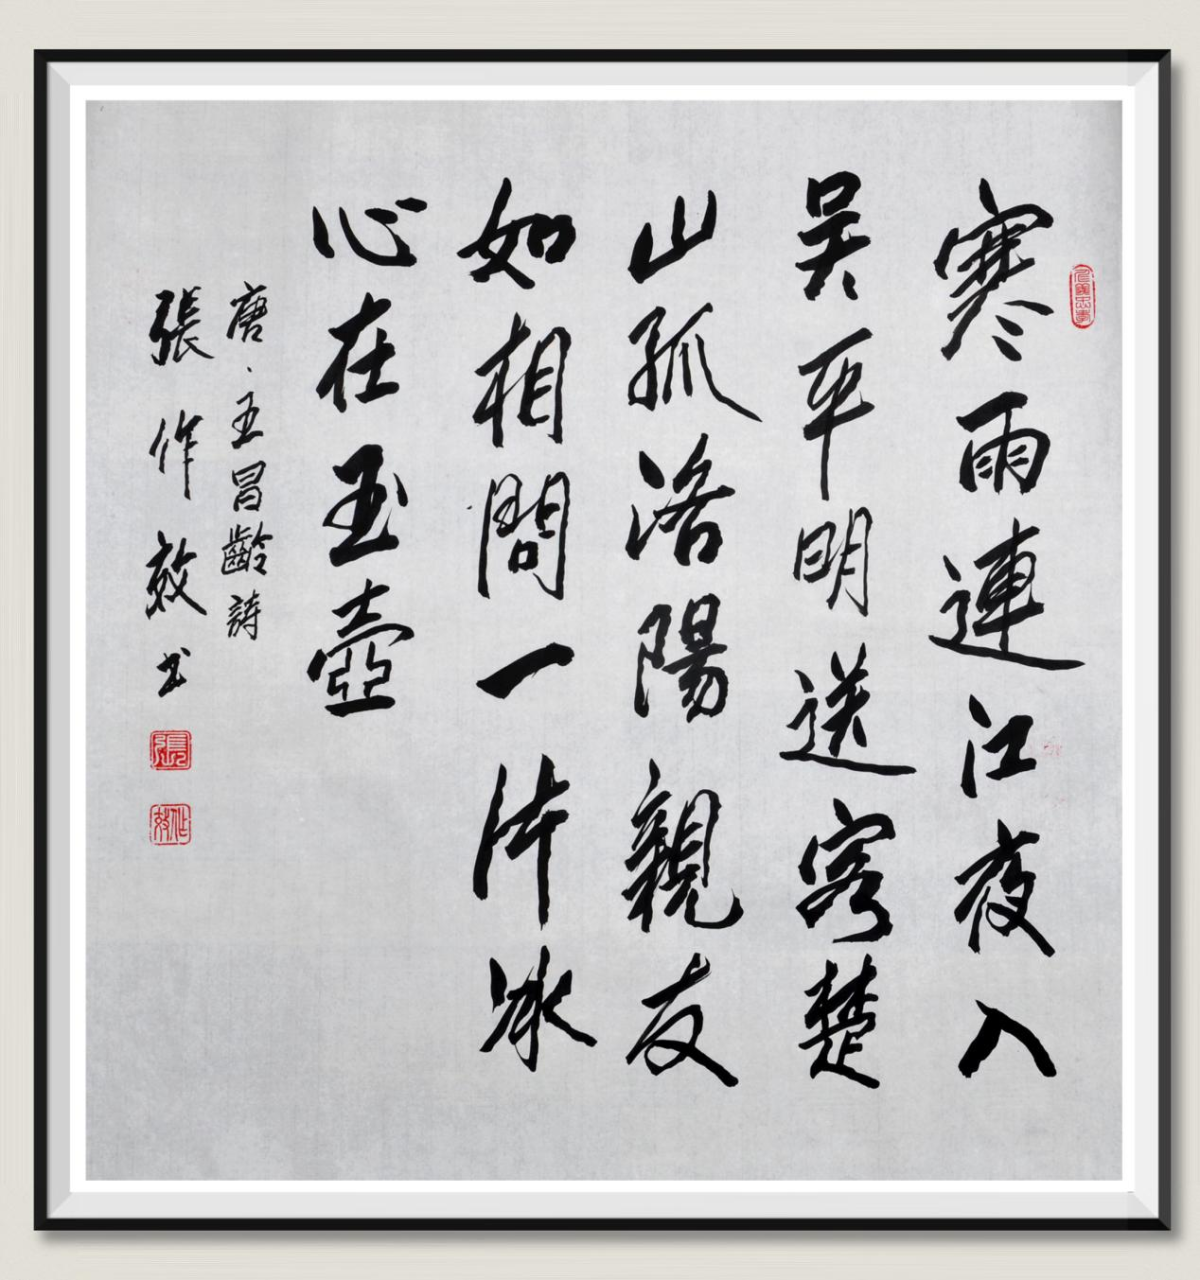 寒雨連江夜入
吳平明送客楚
山孤洛陽親友
如相問一片冰
心在玉壺
唐·王昌齡詩
張作效书